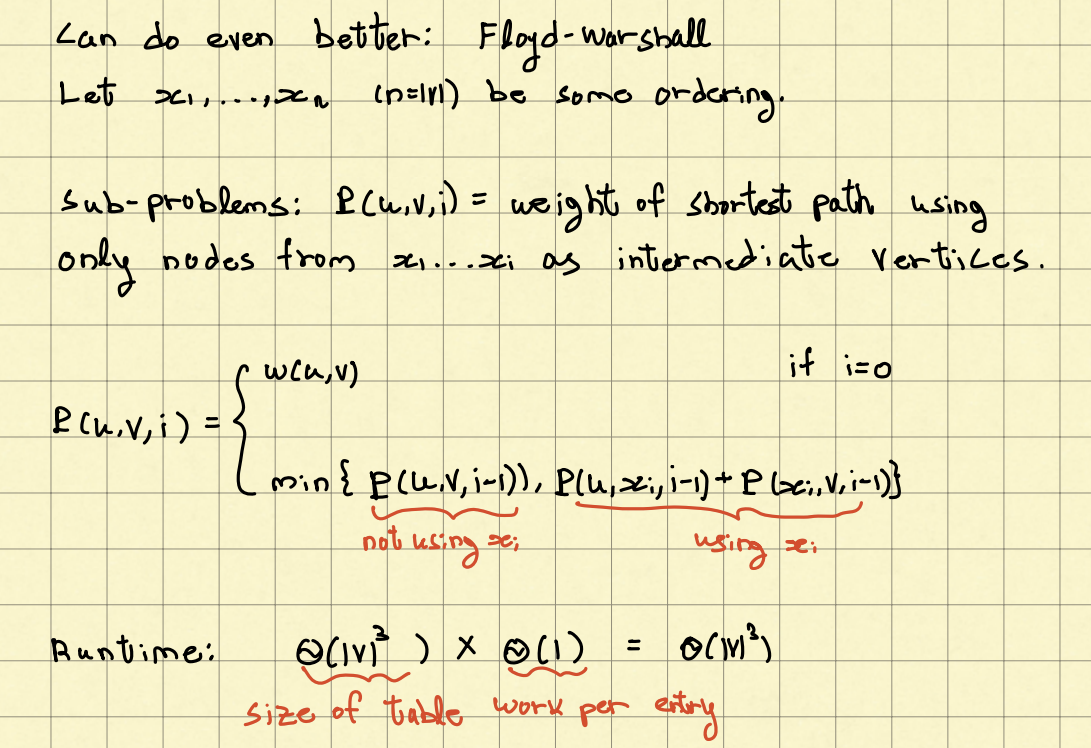 Can do even better: Floyd-Warshall
Let x₁,...,xₙ (n=|V|) be some ordering.
Sub-problems: P(u,v,i) = weight of shortest path using
only nodes from x₁...xᵢ as intermediate vertices.
w(u,v) if i=0
P(u,v,i) = {
min{ P(u,v,i-1)), P(u,xᵢ,i-1) + P(xᵢ,v,i-1)}
not using xᵢ using xᵢ
Runtime: Θ(|V|³) × Θ(1) = Θ(|V|³)
size of table work per entry